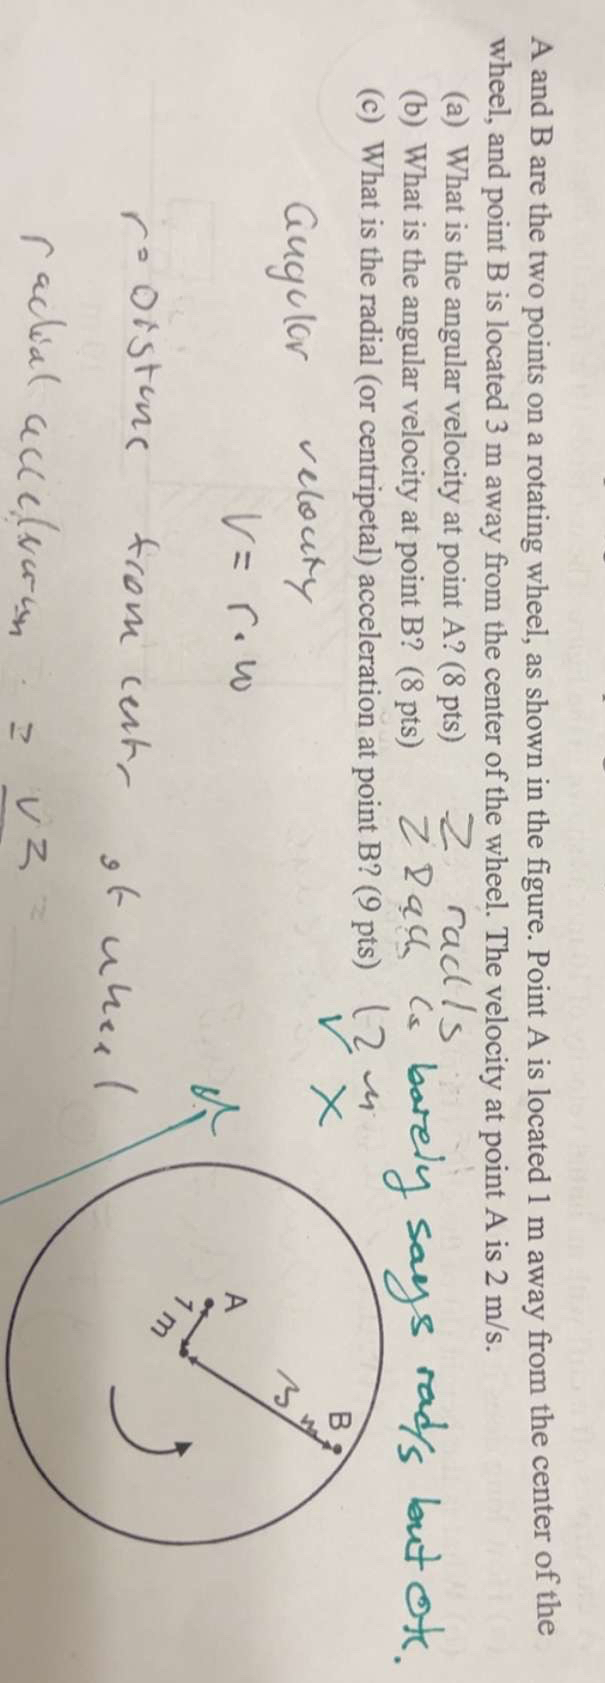 A and B are the two points on a rotating wheel, as shown in the figure. Point A is located 1 m away from the center of the
wheel, and point B is located 3 m away from the center of the wheel. The velocity at point A is 2 m/s.
(a) What is the angular velocity at point A? (8 pts) 2 rad/s
(b) What is the angular velocity at point B? (8 pts) 2 is barely says rad/s but ok.
(c) What is the radial (or centripetal) acceleration at point B? (9 pts) 12 m
✓ X
angular velocity
V = r . w
r = Distanc from centr of wheel
radial =
A
1 m
B
3 m